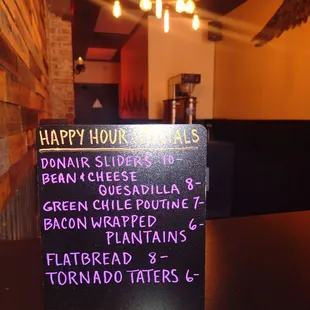 HAPPY HOUR SPECIALS
DONAIR SLIDERS 10-
BEAN & CHEESE
QUESADILLA 8-
GREEN CHILE POUTINE 7-
BACON WRAPPED 6-
PLANTAINS
FLATBREAD 8-
TORNADO TATERS 6-